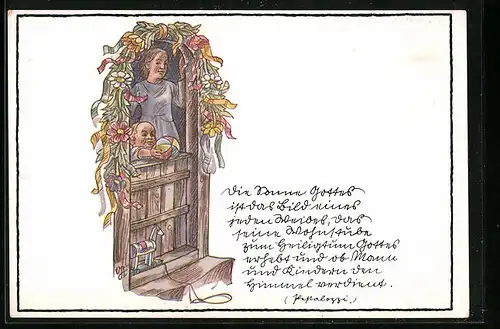 Die Sonne Gottes
ist das Bild eines
jeden Weibes, das
seine Wohnstube
zum Heiligtum Gottes
erhebt und ob Mann
und Kindern den
Himmel verdient.
(Pestalozzi.)